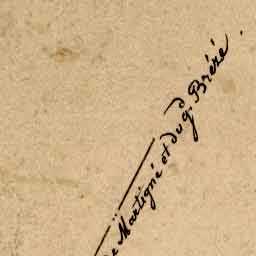 de Martigné et du g.d Brézé.